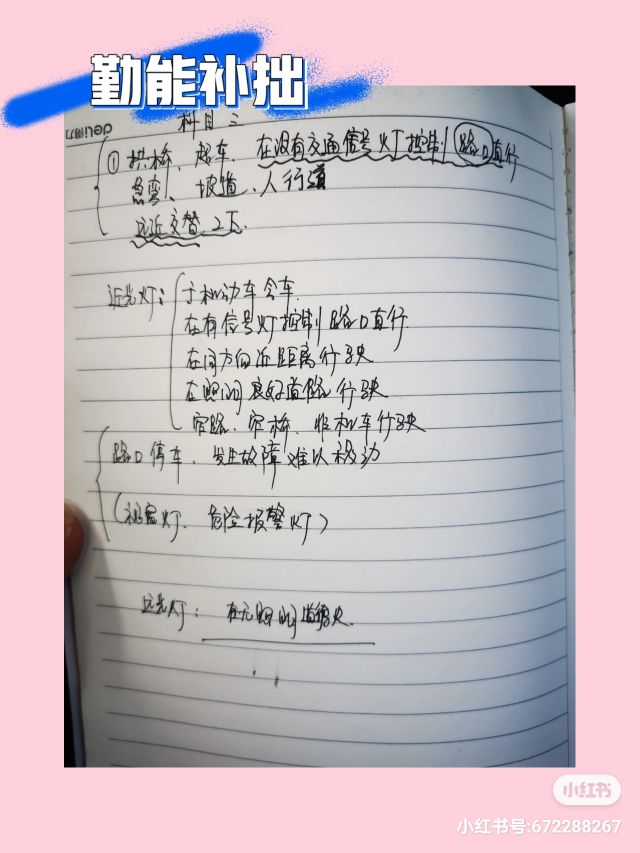 勤能补拙
deli得力
科目三
① 拱桥、超车、在没有交通信号灯控制路口直行
急弯、坡道、人行道
远近交替2下.
近光灯：于机动车会车.
在有信号灯控制路口直行
在同方向近距离行驶
在照明良好道路行驶
窄路、窄桥、非机车行驶
路口停车、发生故障难以移动
灯、危险报警灯）
远光灯：在无照明道
小红书
小红书号:672288267